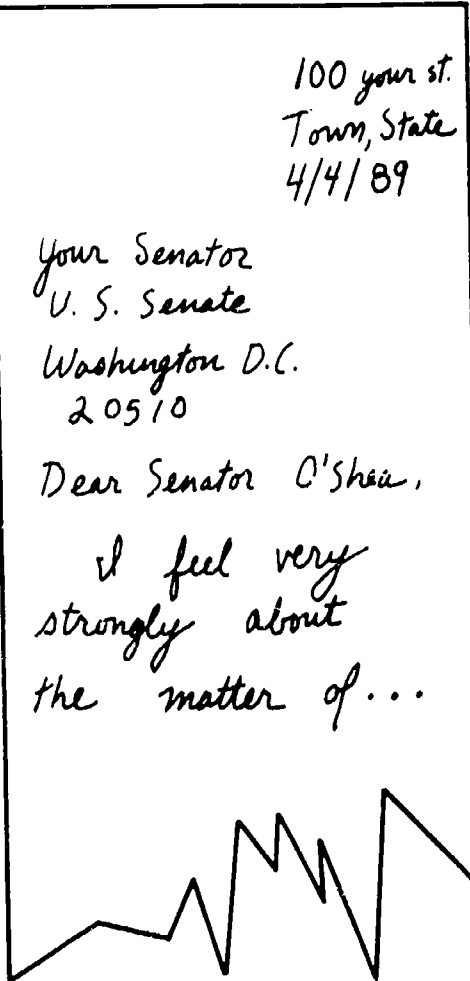 100 your st.
Town, State
4/4/89
Your Senator
U. S. Senate
Washington D.C.
20510
Dear Senator O'Shea,
I feel very
strongly about
the matter of...